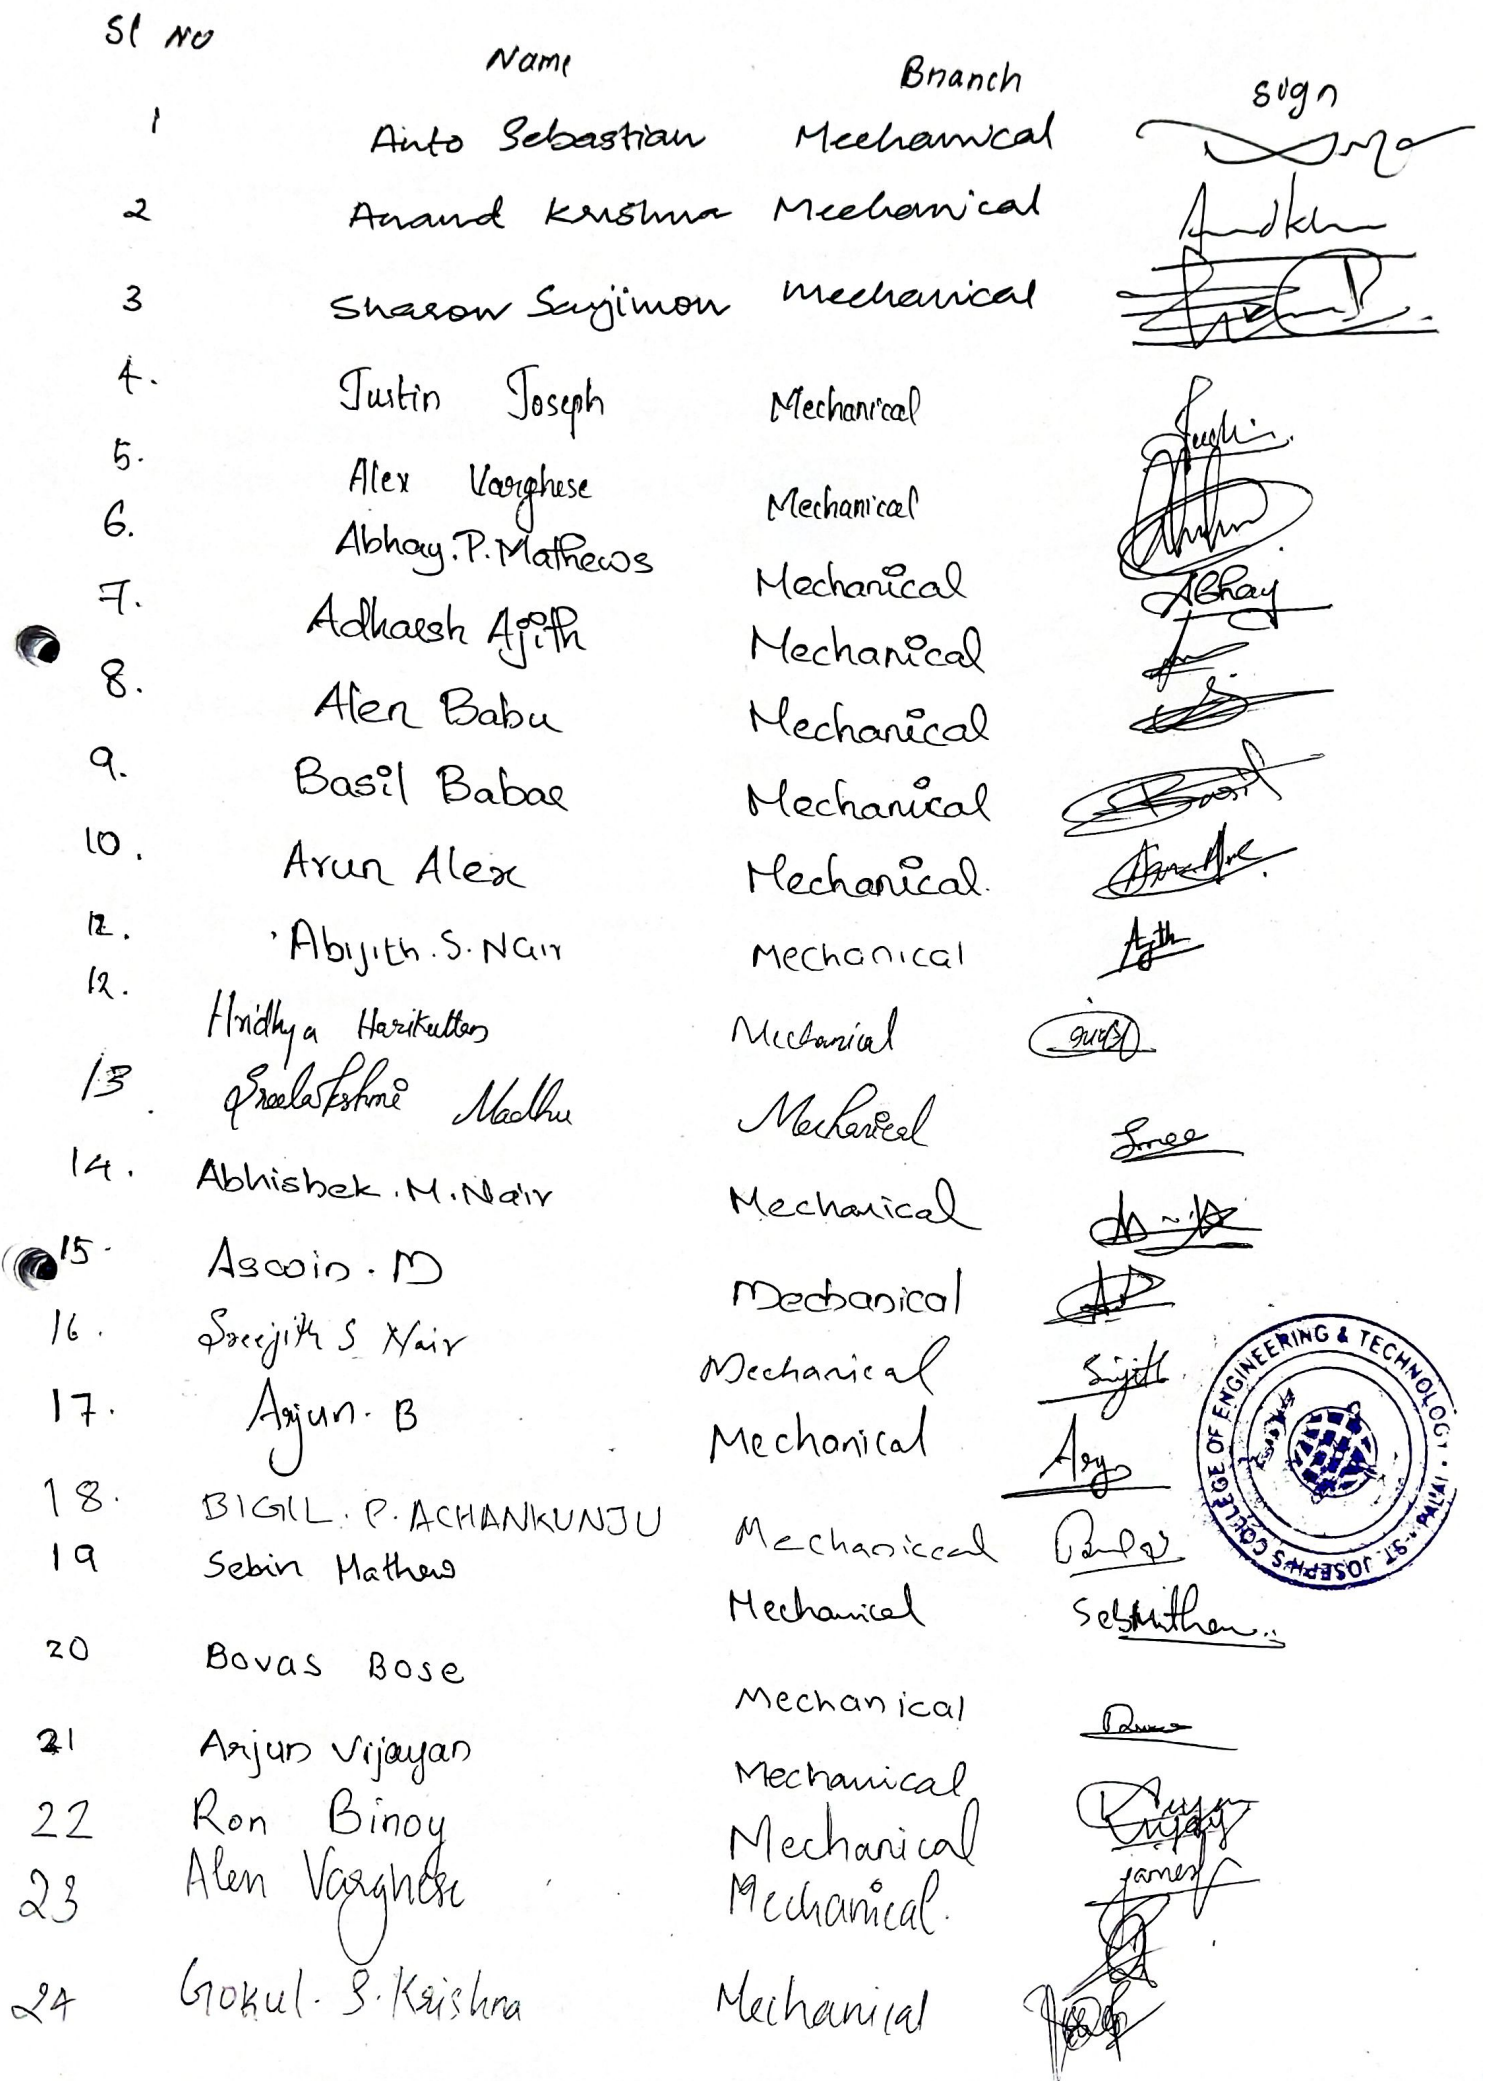 Sl No Name Branch Sign
1 Anto Sebastian Mechanical
2 Anand Krishna Mechanical
3 Sharon Sayjimon Mechanical
4. Justin Joseph Mechanical
5. Alex Varghese Mechanical
6. Abhay.P.Mathews Mechanical Abhay
7. Adharsh Ajith Mechanical
8. Alen Babu Mechanical
9. Basil Babae Mechanical Basil
10. Arun Alex Mechanical.
12. Abijith.S.Nair Mechanical Ajth
12. Hridhya Harikuttan Mechanical
13. Sreelakshmi Madhu Mechanical Sree
14. Abhishek.M.Nair Mechanical
15. Aswin.M Mechanical
16. Sreejith S Nair Mechanical Sijith
17. Arjun.B Mechanical
18. BIGIL.P.ACHANKUNJU Mechaniccal
19 Sebin Mathew Mechanical
20 Bovas Bose Mechanical
21 Arjun Vijayan Mechanical
22 Ron Binoy Mechanical
23 Alen Varghese Mechanical.
24 Gokul.S.Krishna Mechanical
ST. JOSEPH'S COLLEGE OF ENGINEERING & TECHNOLOGY • PALAI •